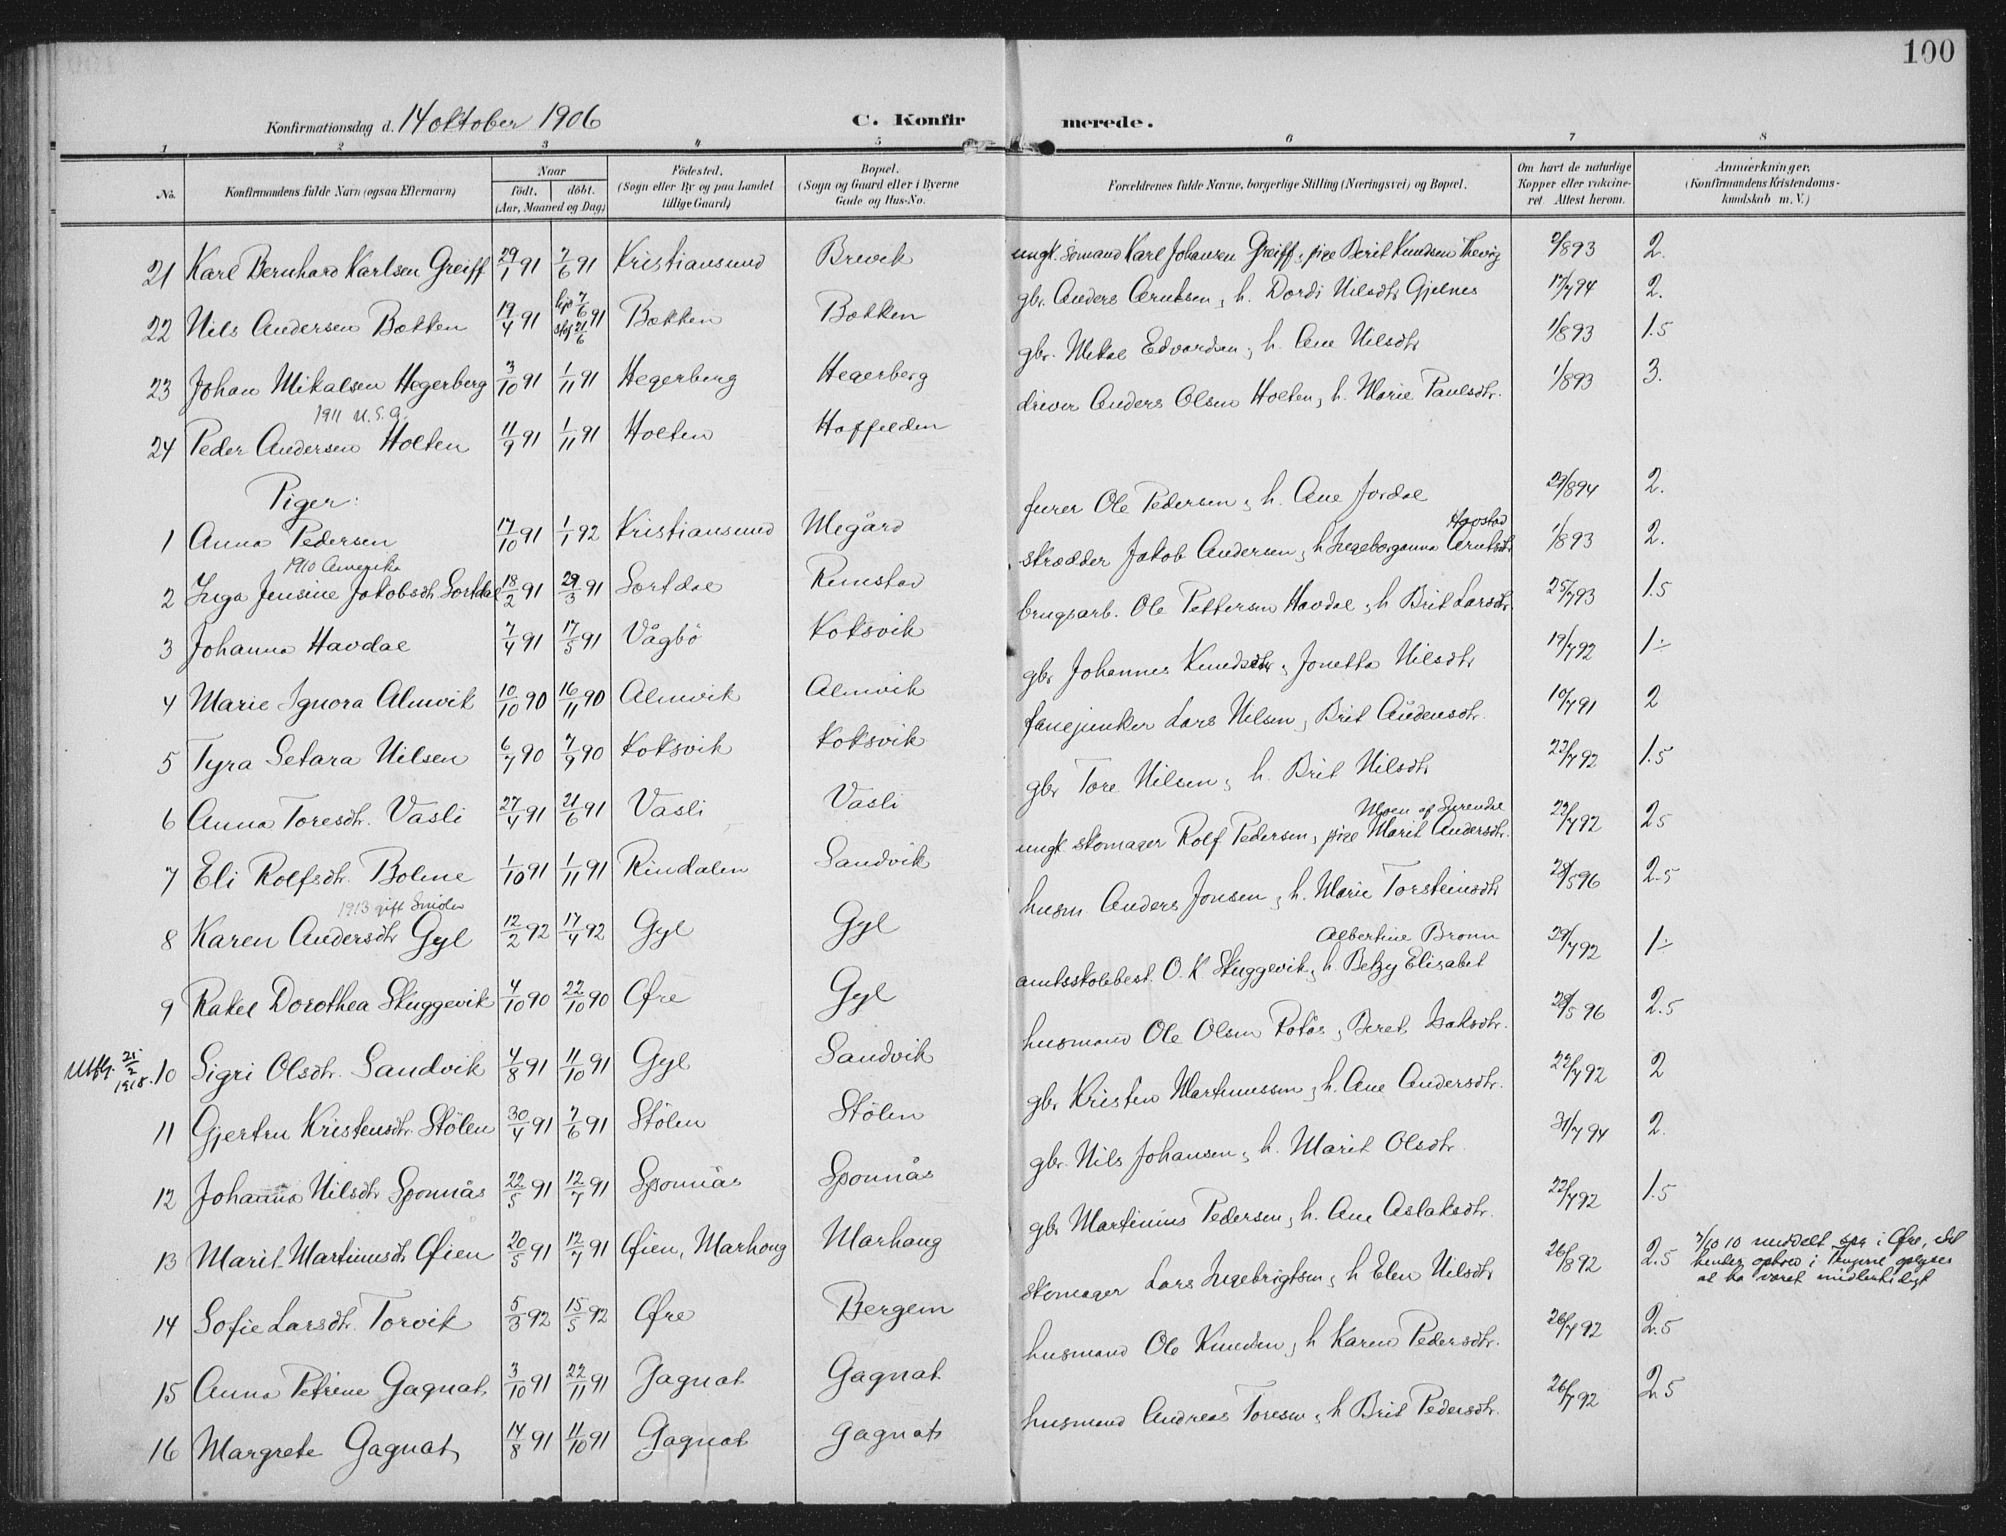 100
Konfirmationsdag d. 14 oktober 1906 C. Konfirmerede.
1 2 3 4 5 6 7 8
No. Konfirmandens fulde Navn (ogsaa Efternavn) Naar födt. döbt. (Aar, Maaned og Dag) Födested. (Sogn eller By og paa Landet tillige Gaard) Bopæl. (Sogn og Gaard eller i Byerne Gade og Hus-No. Forældrenes fulde Navne, borgerlige Stilling (Næringsvei) og Bopæl. Om havt de naturlige Kopper eller vakcineret Attest herom. Anmærkninger. (Konfirmandens Kristendomskundskab m. V.)
21 Karl Bernhard Karlsen Greiff 29/1 91 7/6 91 Kristiansund Brevik ungk. sömand Karl Johansen Greiff, pige Berit Knudsen 893 2.
22 Nils Andersen Bækken 19/4 91 hjd 7/6 91 stf 21/6 Bækken Bækken gbr. Anders Arntsen, h. Dordi Nilsdtr Gjelnes 17/7 94 2.
23 Johan Mikalsen Hegerberg 3/10 91 1/11 91 Hegerberg Hegerberg gbr. Mikal Edvardsen, h. Ane Nilsdtr 1/8 93 1.5
1911 U.S.A.
24 Peder Andersen Holten 11/9 91 1/11 91 Holten Hoffelden driver Anders Olsen Holten, h. Marie Paulsdtr. 1/8 93 3.
Piger:
1 Anna Pedersen 17/10 91 1/1 92 Kristiansund Megård furer Ole Pedersen, h. Ane Jordal 29/8 94 2.
1910 Amerika
Havstad
2 Inga Jensine Jakobsdtr Sortdal 18/2 91 29/3 91 Sortdal Rimstad skrædder Jakob Andersen, h. Ingeborganna Arntsdtr 1/8 93 2.
3 Johanna Havdal 7/4 91 17/5 91 Vågbö Koksvik brugsarb. Ole Pettersen Havdal, h Brit Larsdtr. 25/7 93 1.5
4 Marie Ignora Almvik 10/10 90 16/11 90 Almvik Almvik gbr Johannes Knudsdtr, Jonetta Nilsdtr 19/7 92 1÷
5 Tyra Setara Nilsen 6/7 90 7/9 90 Koksvik Koksvik fanejunker Lars Nilsen, Brit Audensdtr. 10/7 91 2
6 Anna Toresdtr. Vasli 27/4 91 21/6 91 Vasli Vasli gbr Tore Nilsen, h. Brit Nilsdtr 7 92 1.5
Moen af Surendal
7 Eli Rolfsdtr. Bolme 1/10 91 1/11 91 Rindalen Sandvik ungk. skomager Rolf Pedersen, pige Marit Andersdtr. 22/7 92 2 5
1913 gift Smölen
8 Karen Andersdtr Gyl 12/2 92 17/4 92 Gyl Gyl husm Anders Jonsen, h. Marie Torsteinsdtr 28/5 96 2.5
Albertine Bronn
9 Rakel Dorothea Skuggevik 4/10 90 22/10 90 Øfre Gyl amtsskolebest. O. K Skuggevik, h. Betzy Elisabet 29/7 92 1÷
Utfl. 21/2 1918. 10 Sigri Olsdtr. Sandvik 4/8 91 11/10 91 Gyl Sandvik husmand Ole Olsen Rotås, Beret Isaksdtr. 28/5 96 2.5
11 Gjertru Kristensdtr. Stölen 30/4 91 7/6 91 Stölen Stölen gbr Kristen Martinussen, h. Ane Andersdtr. 22/7 92 2
12 Johanna Nilsdtr Sponnås 22/5 91 12/7 91 Sponnås Sponnås gbr. Nils Johansen, h. Marit Olsdtr. 31/7 94 2.
13 Marit Martinusdtr Øien 20/5 91 12/7 91 Øien, Marhaug Marhaug gbr Martinius Pedersen, h. Ane Aslaksdtr. 22/7 92 1.5
14 Sofie Larsdtr. Torvik 5/3 92 15/5 92 Øfre Bergem skomager Lars Ingebrigtsen, h Elen Nilsdtr 26/8 92 2.5 10 10 meddelt i Øfre, at hendes ophold i oplyses at ha været midlertidigt
15 Anna Petrine Gagnat 3/10 91 22/11 91 Gagnat Gagnat husmand Ole Knudsen, h Karen Pedersdtr. 26/7 92 2.5
16 Margrete Gagnat 14/8 91 11/10 91 Gagnat Gagnat husmand Andreas Toresen, h Brit Pedersdtr. 26/7 92 2.5